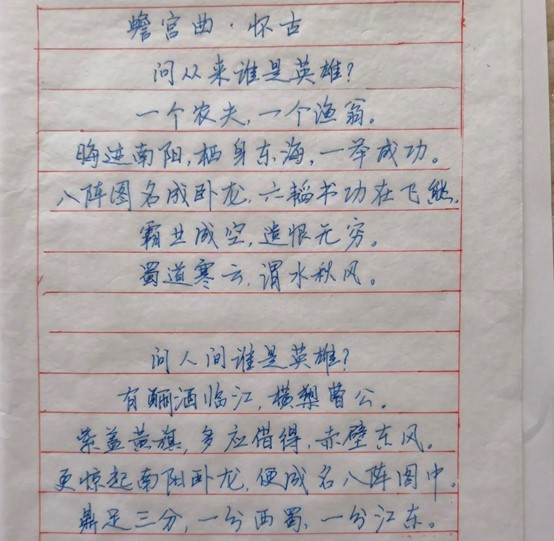 蟾宫曲·怀古
问从来谁是英雄?
一个农夫,一个渔翁。
晦迹南阳,栖身东海,一举成功。
八阵图名成卧龙,六韬书功在飞熊,
霸业成空,遗恨无穷。
蜀道寒云,渭水秋风。
问人间谁是英雄?
有酾酒临江,横槊曹公。
紫盖黄旗,多应借得,赤壁东风。
更惊起南阳卧龙,便成名八阵图中。
鼎足三分,一分西蜀,一分江东。